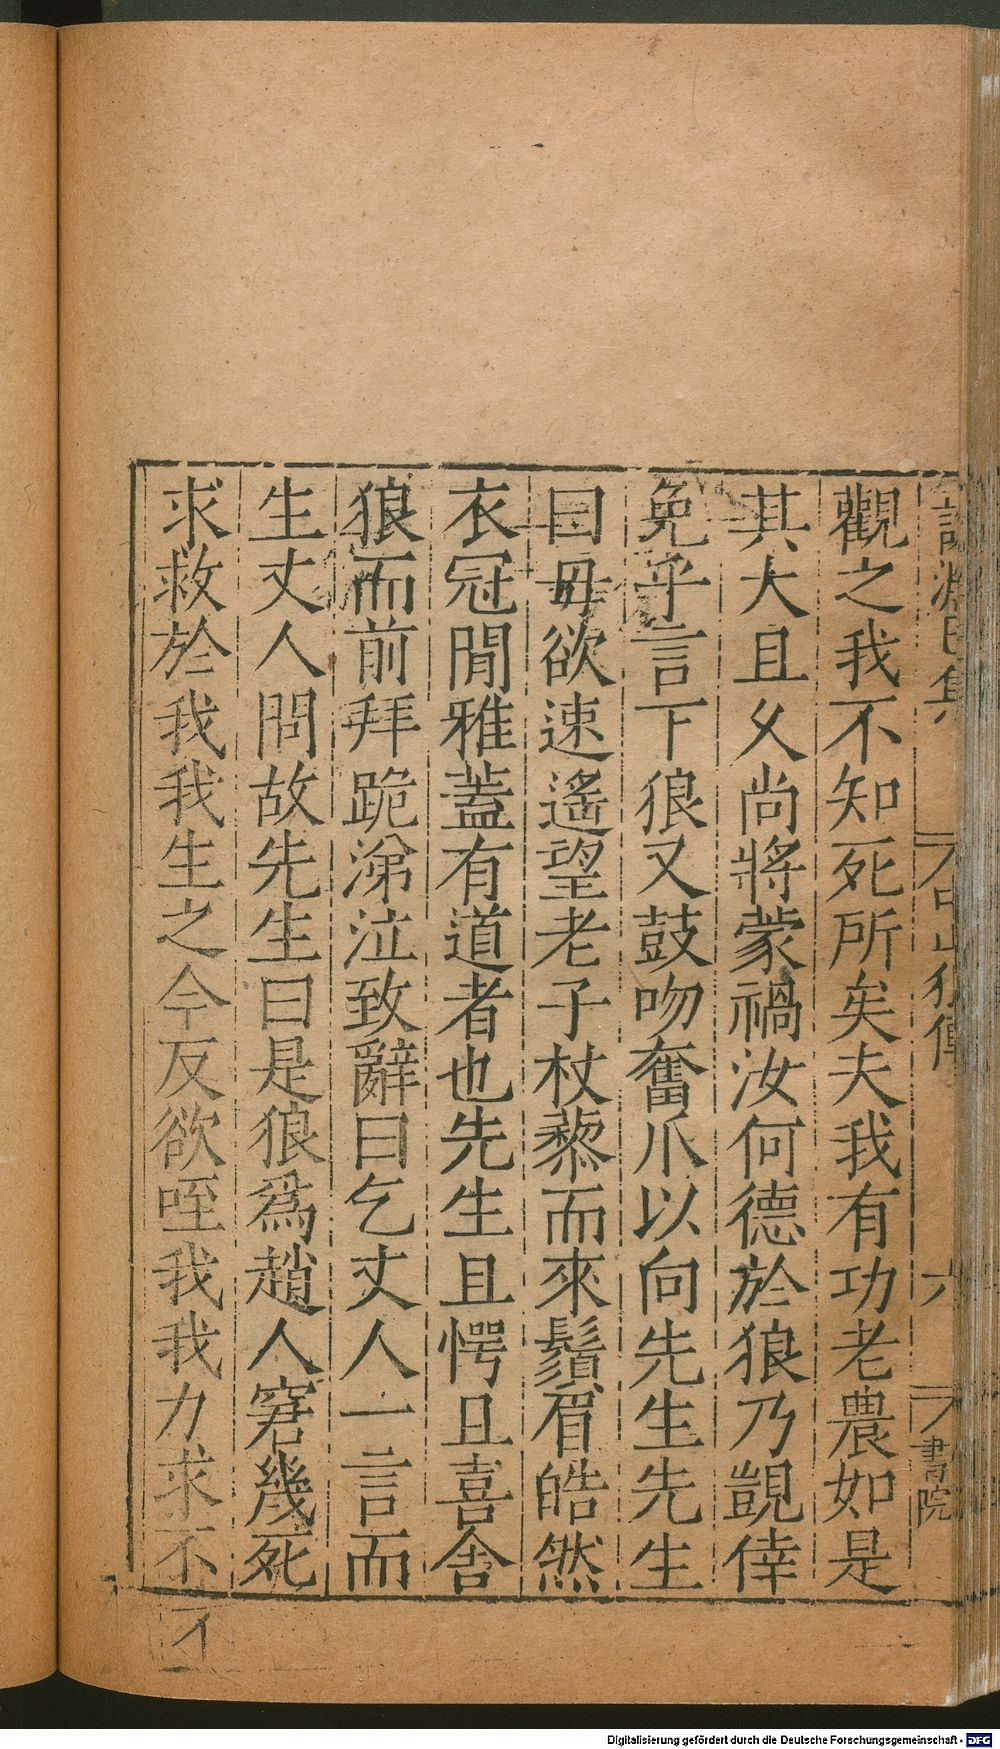 集
中山狼傳
六
書院
觀之我不知死所矣夫我有功老農如是
其大且久尚將蒙禍汝何德於狼乃覬倖
免乎言下狼又鼓吻奮爪以向先生先生
曰毋欲速遙望老子杖藜而來鬚眉皓然
衣冠閒雅蓋有道者也先生且愕且喜舍
狼而前拜跪涕泣致辭曰乞丈人一言而
生丈人問故先生曰是狼爲趙人窘幾死
求救於我我生之今反欲咥我我力求不
Digitalisierung gefördert durch die Deutsche Forschungsgemeinschaft - DFG